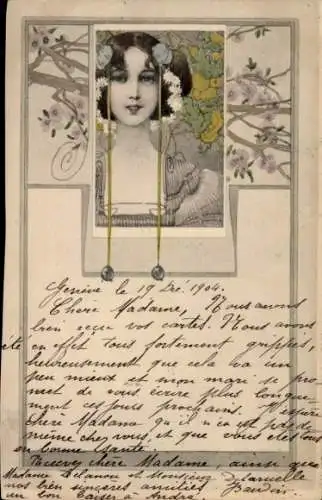 Genève le 19 Dé. 1904.
Chère Madame, Nous avons
bien reçu vos cartes. Nous avons
été en effet tous fortement grippés,
heureusement que cela va un
peu mieux et mon mari se pro-
met de vous écrire plus longue-
ment ces jours prochains. J'espère
chère Madame qu'il n'en est pas de
même chez vous, et que vous êtes tous
en bonne santé.
Recevez chère Madame, ainsi que
Madame Delanon et Monsieur
nos bien sincères amitiés
un bon baiser à André